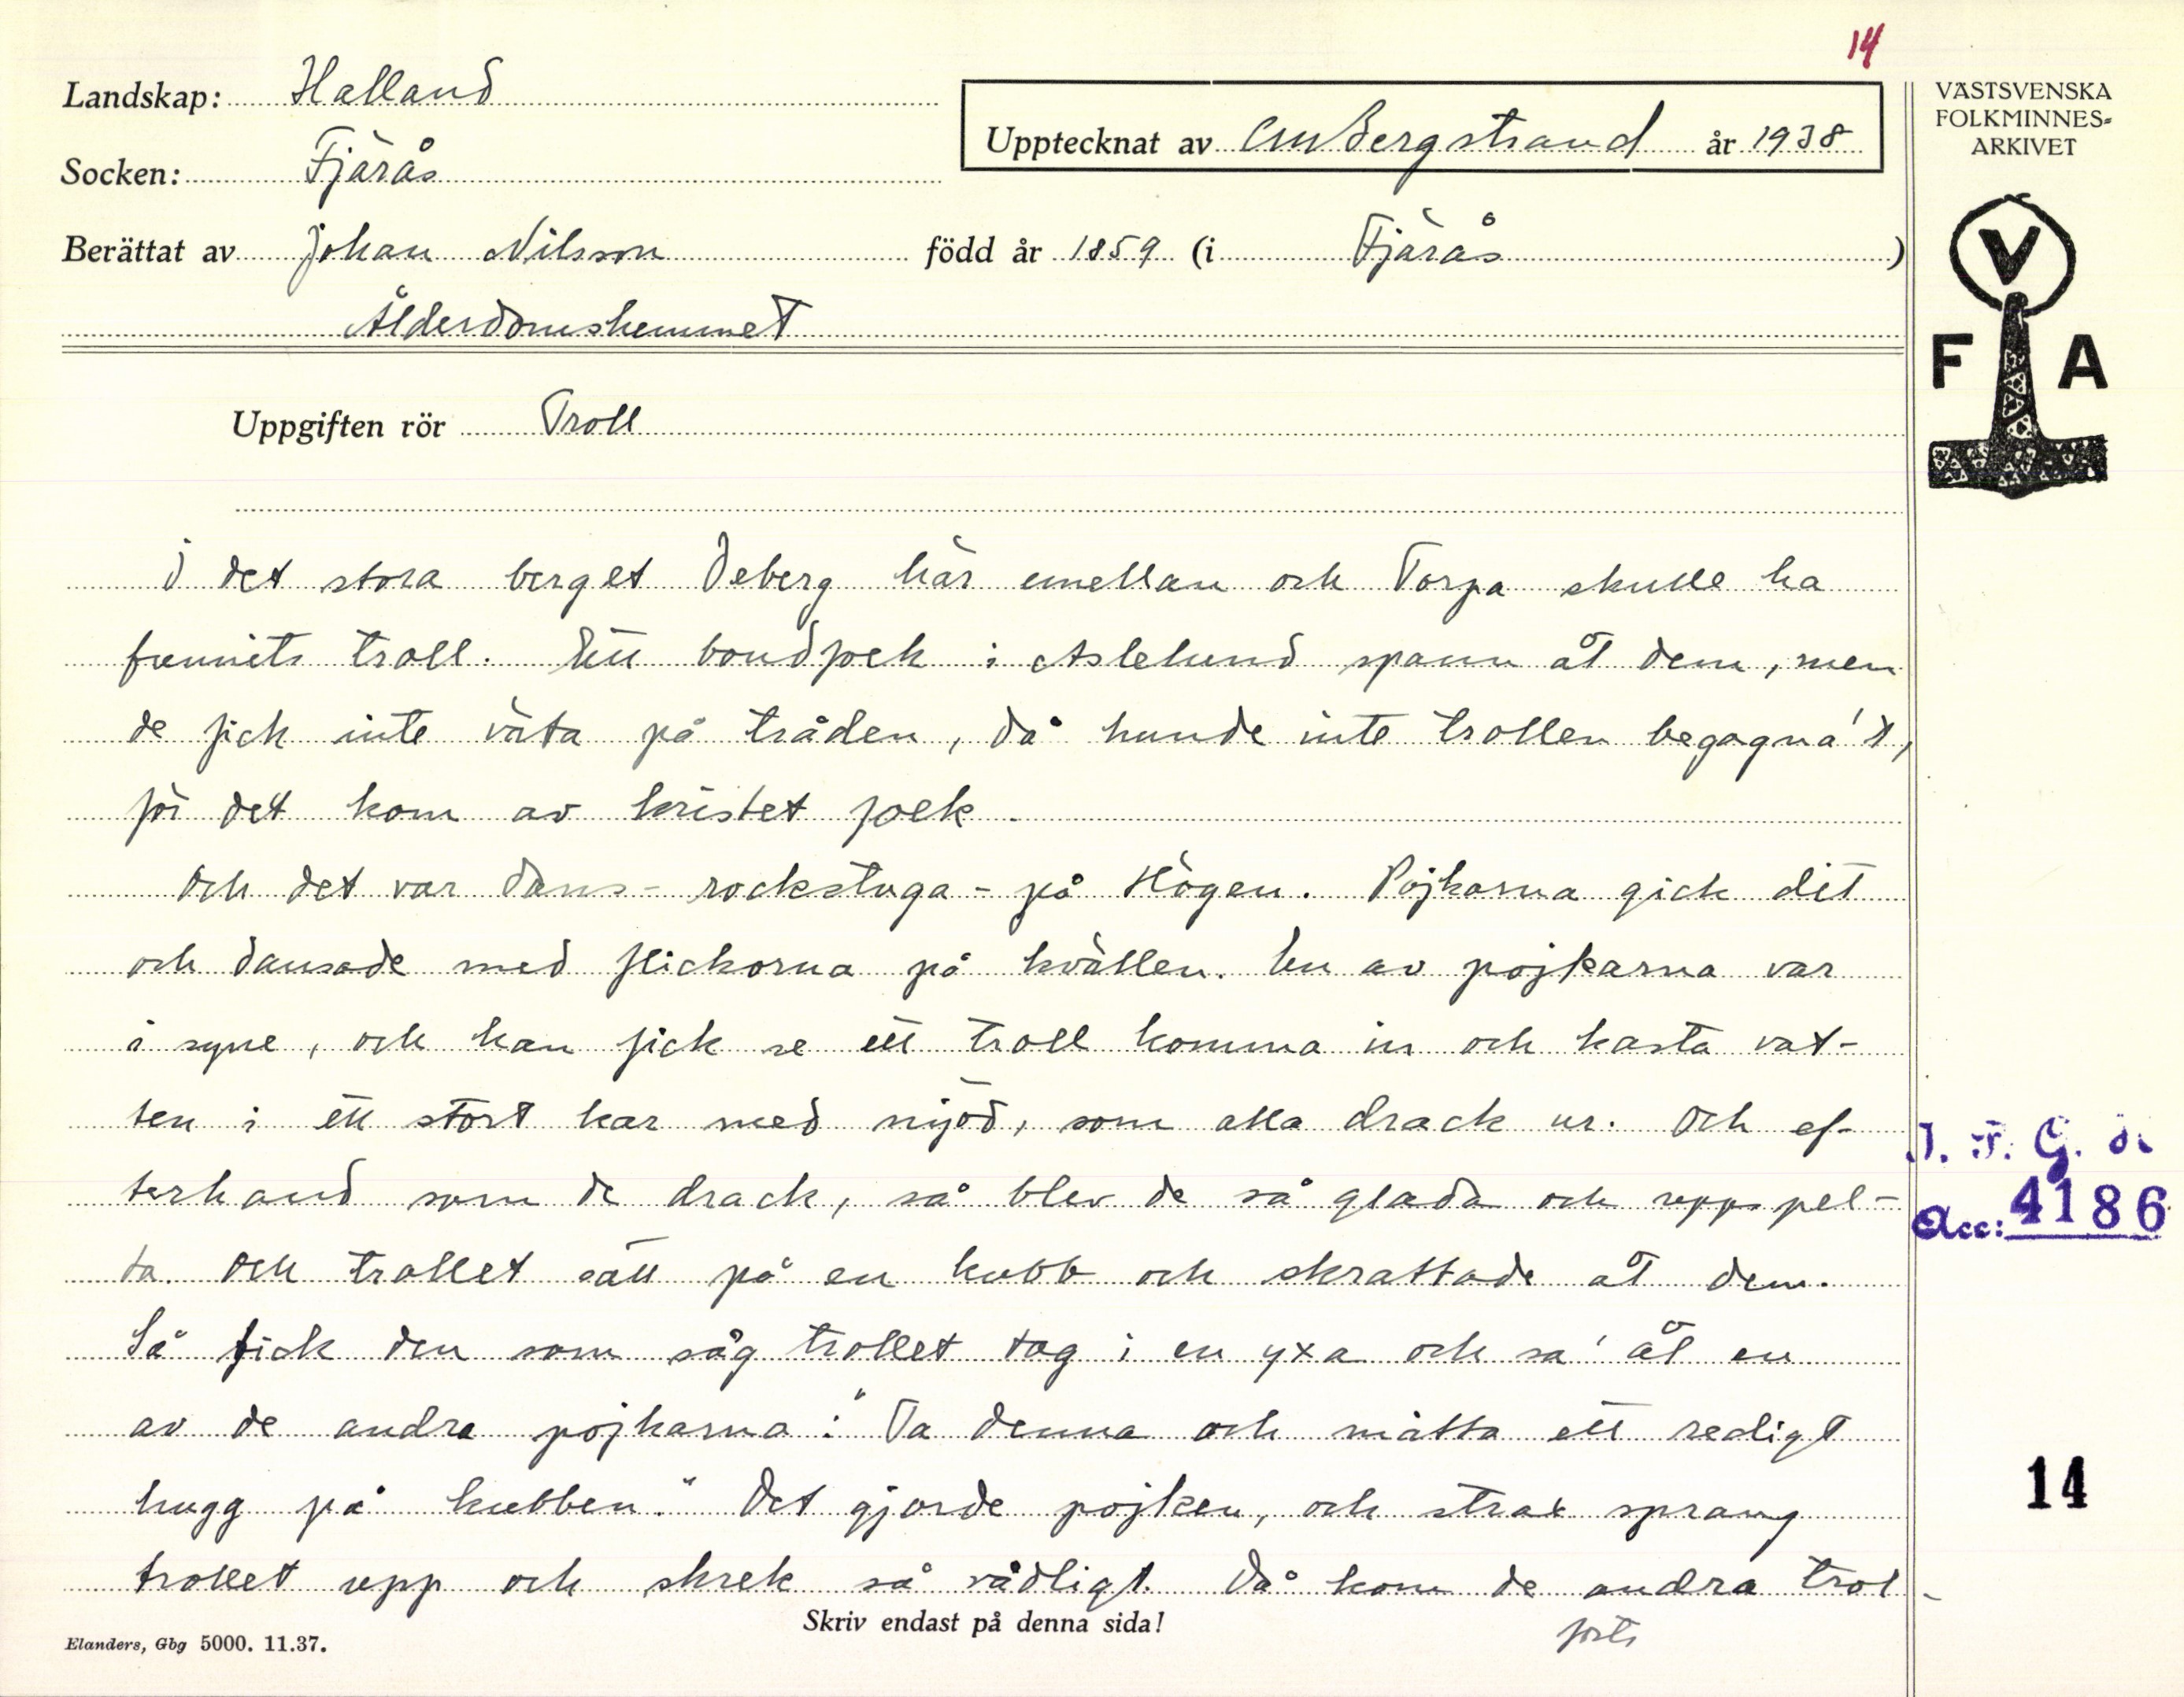 14
Landskap: Halland
Upptecknat av CMBergstrand år 1938
VÄSTSVENSKA
FOLKMINNES-
ARKIVET
Socken: Fjärås
Berättat av Johan Nilsson född år 1859 (i Fjärås)
Ålderdomshemmet
V
F A
Uppgiften rör Troll
I det stora berget Deberg här emellan och Torpa skulle ha
funnits troll. Ett bondfolk i Aslelund spann åt dem, men
de fick inte väta på tråden, då kunde inte trollen begagna't,
för det kom av kristet folk.
Och det var dans - rockstuga - på Högen. Pojkarna gick dit
och dansade med flickorna på kvällen. En av pojkarna var
i syne, och han fick se ett troll komma in och kasta vat-
ten i ett stort kar med mjöd, som alla drack ur. Och ef-
terhand som de drack, så blev de så glada och uppspel-
ta. Och trollet satt på en kubb och skrattade åt dem.
Så fick den som såg trollet tag i en yxa och sa' åt en
av de andra pojkarna: "Ta denna och måtta ett redigt
hugg på kubben." Det gjorde pojken, och strax sprang
trollet upp och skrek så rådligt. Då kom de andra trol-
forts
I. F. G. ö.
Acc: 4186
14
Skriv endast på denna sida!
Elanders, Gbg 5000. 11.37.